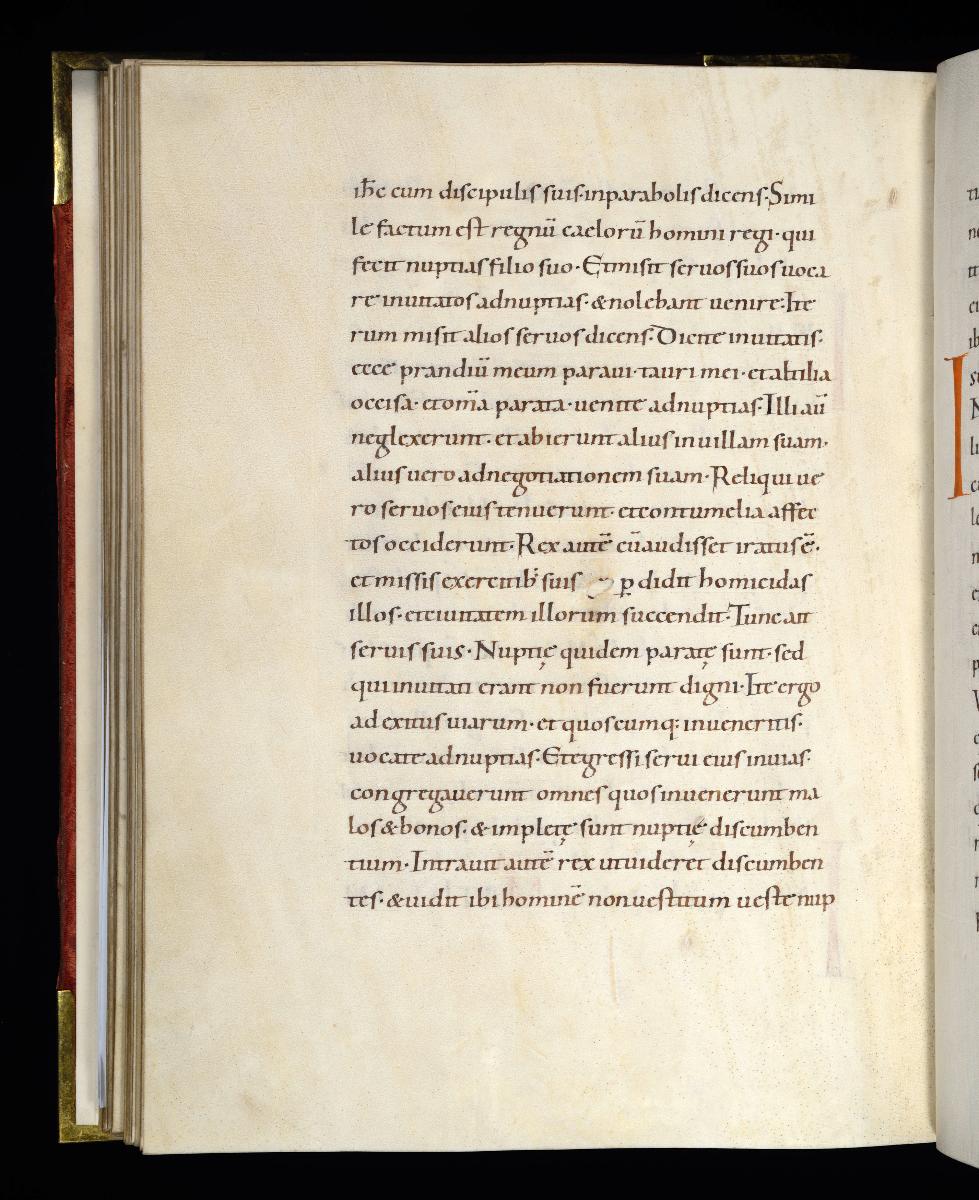 ihc̄ cum discipulis suis· in parabolis dicens· Simi
le factum est regnū caelorū homini regi· qui
fecit nuptias filio suo· Et misit seruos suos uoca
re inuitatos ad nuptias· & nolebant uenire· Ite
rum misit alios seruos dicens· Dicite inuitatis·
ecce prandiū meum paraui· tauri mei· et altilia
occisa· et om̄a parata· uenite ad nuptias· Illi aū
neglexerunt· et abierunt alius in uillam suam·
alius uero ad negotiationem suam· Reliqui ue
ro seruos eius tenuerunt· et contumelia affec
tos occiderunt· Rex autē cū audisset iratus ē·
et missis exercitib; suis ꝑdidit homicidas
illos· et ciuitatem illorum succendit· Tunc ait
seruis suis· Nuptię quidem paratę sunt· sed
qui inuitati erant non fuerunt digni· Ite ergo
ad exitus uiarum· et quoscumq: inueneritis·
uocate ad nuptias· Et egressi serui eius in uias·
congregauerunt omnes quos inuenerunt ma
los & bonos· & impletę sunt nuptię discumben
tium· Intrauit autē rex ut uideret discumben
tes· & uidit ibi hominē non uestitum ueste nup